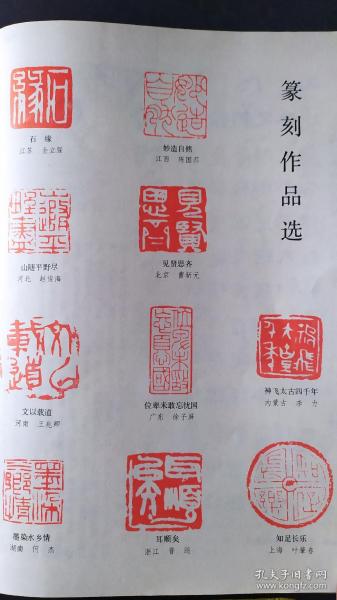 篆刻作品选
石缘
妙造自然
江西 陈国昌
山随平野尽
河北 赵俊海
见贤思齐
北京 曹新元
文以载道
河南 王兆卿
位卑未敢忘忧国
广东 徐子屏
神飞太古四千年
内蒙古 李力
墨染水乡情
湖南 何杰
耳顺矣
浙江
知足长乐
上海 叶肇春
孔夫子旧书网